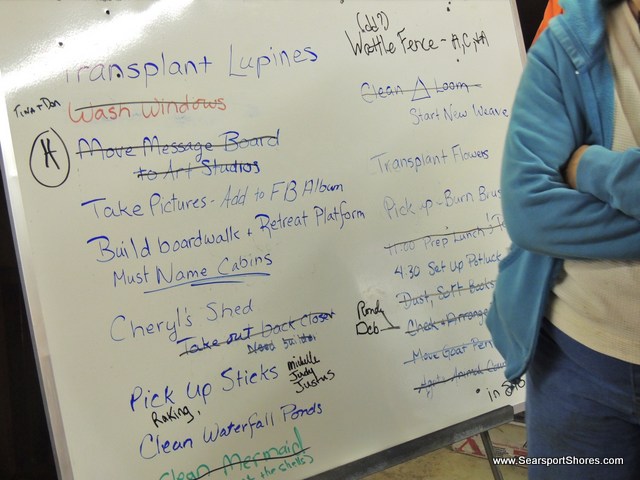 Transplant Lupines
Tina + Dan
Wash Windows
H
Move Message Board
to Art Studios
Take Pictures - Add to FB Album
Build boardwalk + Retreat Platform
Must Name Cabins
Cheryl's Shed
Take out back Closet
Need
Pick Up Sticks
Michelle
Judy
Justus
Raking,
Clean Waterfall Ponds
Clean Mermaid
the shells)
(add?)
Wattle Fence - A, C,
Clean △ Loom
Start New Weave
Transplant Flowers
Pick up - Burn Brus
11:00 Prep Lunch
4:30 Set Up Potluck
Dust, Sort Books
Randy
Deb
Check + Arrange
Move Goat Pen
in
www.SearsportShores.com